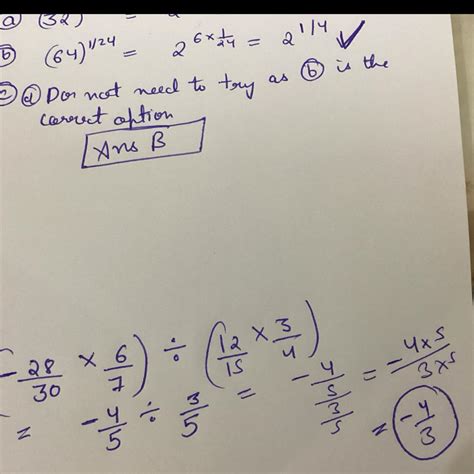 a) (32) = 2
b) (64)^1/24 = 2^6×1/24 = 2^1/4 ✓
c) d) Don not need to try as b) is the
correct option
Ans B
(-28/30 × 6/7) ÷ (12/15 × 3/4)
= -4/5 ÷ 3/5 = -4/5/3/5 = -4×5/3×5 = -4/3